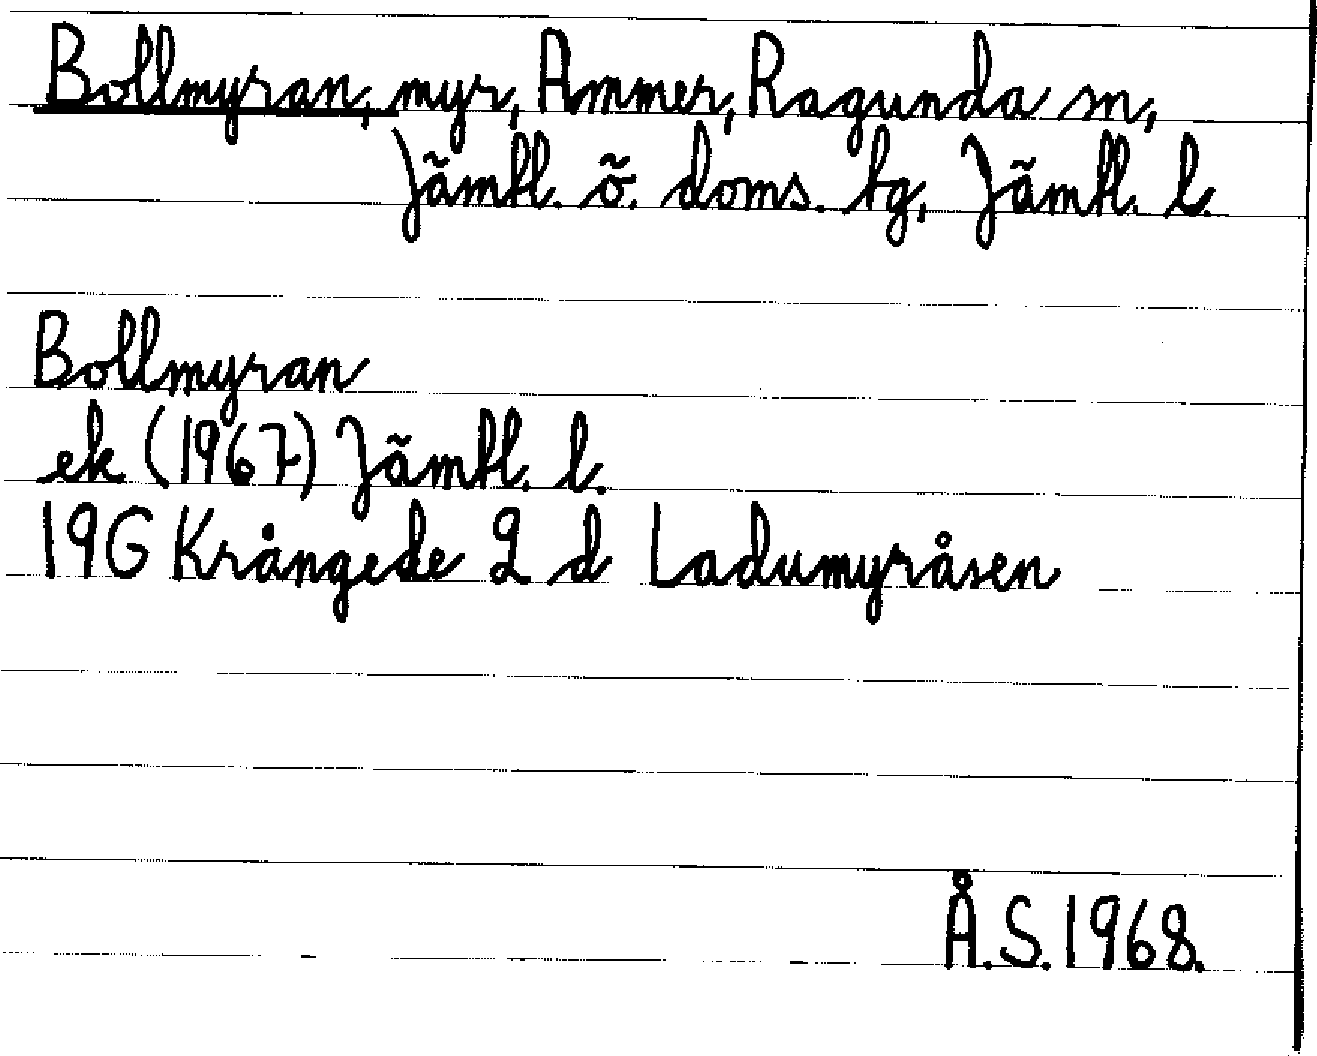 Bollmyran, myr, Ammer, Ragunda sn,
Jämtl. ö. doms. tg, Jämtl. l.
Bollmyran
ek (1967) Jämtl. l.
19G Krångede 2 d Ladumyråsen
Å.S. 1968.